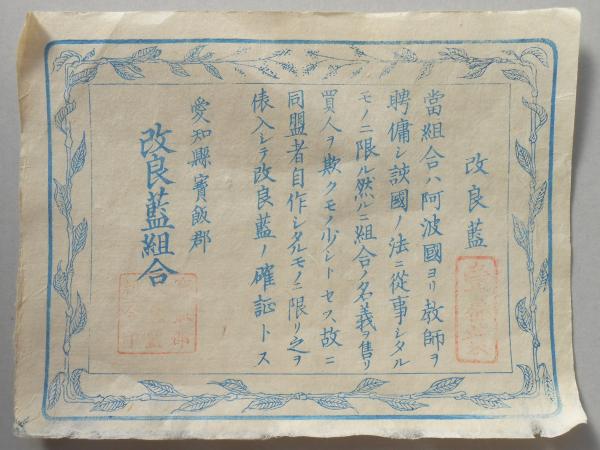 改良藍
當組合ハ阿波國ヨリ教師ヲ
聘傭シ該國ノ法ニ從事シタル
モノニ限ル然ルニ組合ノ名義ヲ售リ
買人ヲ欺クモノ少シトセス故ニ
同盟者自作シタルモノニ限リ之ヲ
俵入シテ改良藍ノ確証トス
愛知縣寳飯郡
改良藍組合